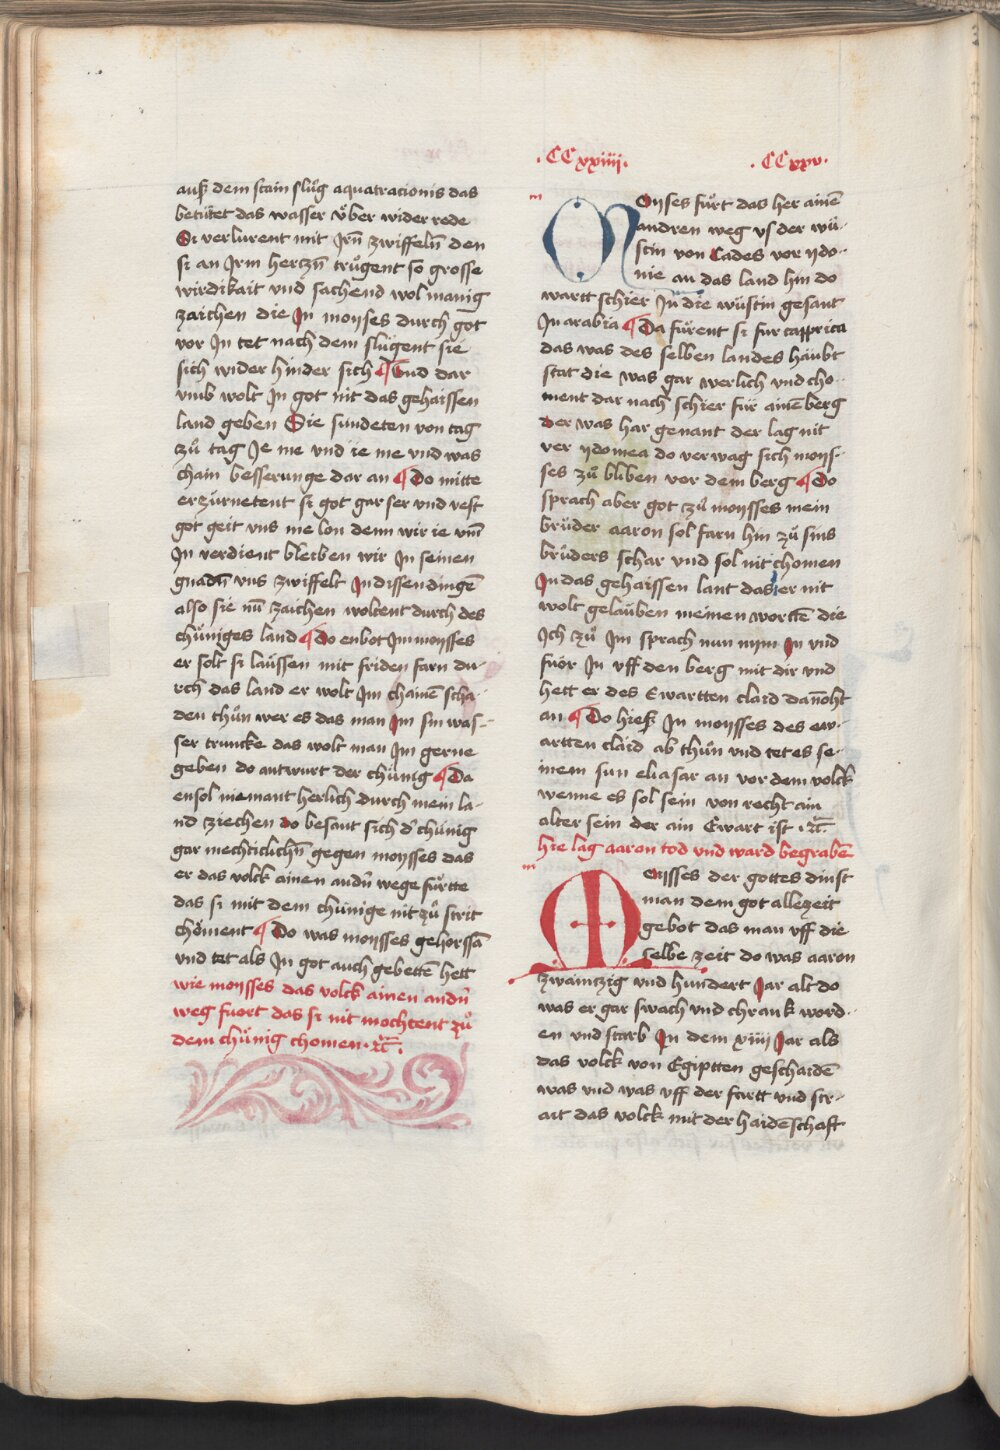 .CCxxiiii. .CCxxv.
auß dem stain slůg aquatracionis das
betütet das wasser über wider rede
Si verlurent mit Irñ zwiffelñ den
si an Irm hertzñ trůgent so grosse
wirdikait vnd sachend wol manig
zaichen die In moyses durch got
vor In tet nach dem slůgent sie
sich wider hinder sich ¶ Vnd dar
vmb wolt In got nit das gehaissen
land geben Sie sundeten von tag
zů tag Ie me vnd ie me vnd was
chain besserunge dar an ¶ Do mitte
erzürnetent si got gar ser vnd vest
got geit vns me lon denn wir ie vm̄
In verdient bleiben wir In seinen
gnadñ vns zwiffelt In dissen dingē
also sie nū zaichen woltent durch des
chüniges land ¶ Do enbot Im moysses
er solt si laüssen mit friden farn du-
rch das land er wolt Im chainē scha-
den thůn wer es das man Im sin was-
ser truncke das wolt man Im gerne
geben do antwurt der chünig ¶ Da
ensol niemant herlich durch mein la-
nd ziechen do besant sich d' chünig
gar mechticlichñ gegen moysses das
er das volck ainen andñ wege fürtte
das si mit dem chünige nit zů strit
chöment ¶ Do was moysses gehorssā
vnd tet als In got auch gebettē hett
wie moysses das volck ainen andñ
weg fuort das si nit mochtent zů
dem chünig chomen .rc̄.
m
Moyses fůrt das her ainē
andren weg vs der wů-
stin von Cades vor ydo-
nie an das land hin do
wartt schier In die wüstin gesant
In arabia ¶ Da fürent si fur capprica
das was des selben landes haubt
stat die was gar werlich vnd cho-
ment dar nach schier für ainē berg
der was har genant der lag nit
ver ydomea do verwag sich moys-
ses zů bliben vor dem berg ¶ Do
sprach aber got zů moysses mein
brüder aaron sol farn hin zů sins
brůders schar vnd sol nit chomen
In das gehaissen lant das er nit
wolt gelauben meinen worttē die
Ich zů Im sprach nun nym In vnd
fuor In vff den berg mit dir vnd
hett er des Ewartten claid dañoht
an ¶ Do hieß In moysses des ew-
artten claid ab thůn vnd tet es se-
inem sun eliasar an vor dem volck
wenne es sol sein von recht ain
alter sein der ain Ewart ist .rc̄.
hie lag aaron tod vnd ward begrabē
m
Moysses der gottes dinst
man dem got allezeit
gebot das man vff die
selbe zeit do was aaron
zwaintzig vnd hundert Jar alt do
was er gar swach vnd chrank word-
en vnd starb In dem xiiii Jar als
das volck von Egiptten geschaidē
was vnd was vff der fartt vnd str-
ait das volck mit der haidēschaft